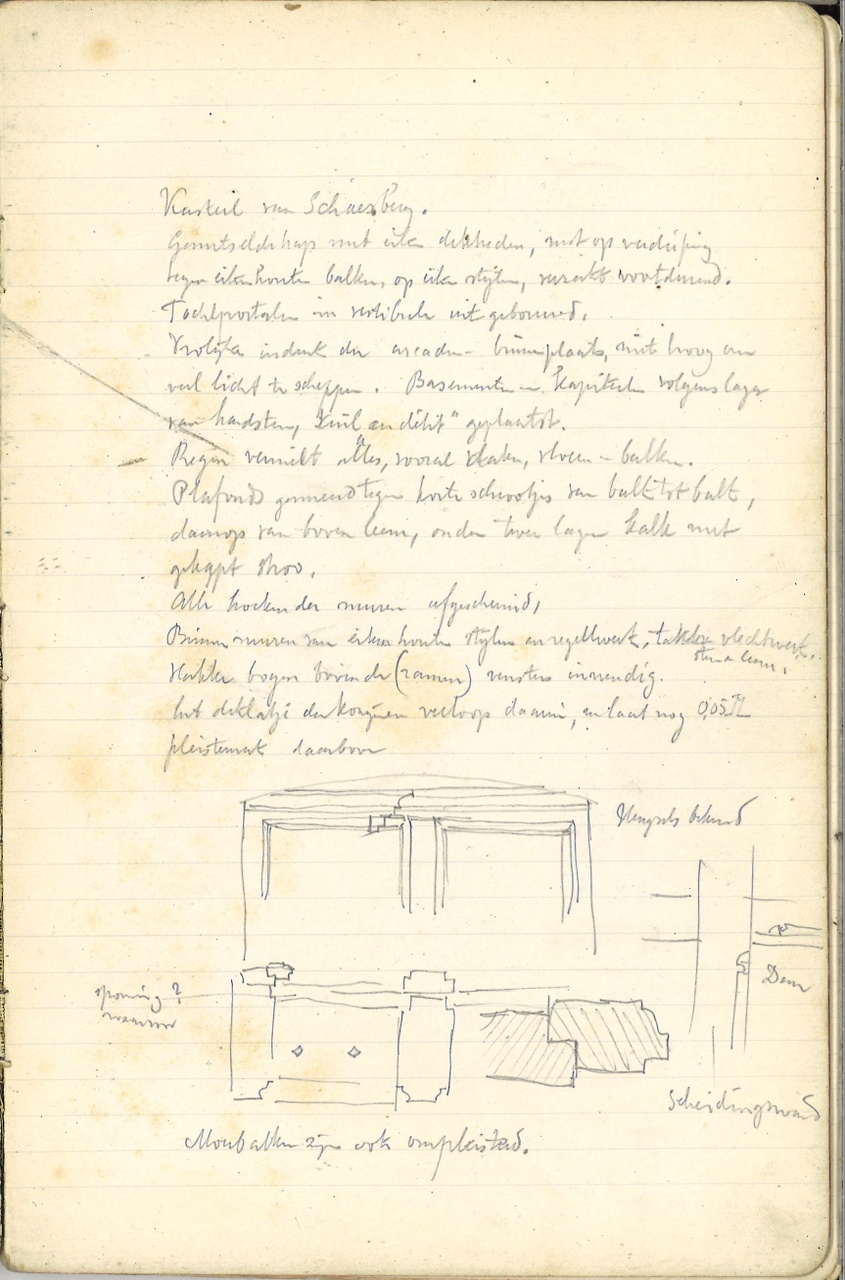 Kasteel van Schaesberg.
Gemetseld kap met eiken dikheden, met op verdieping
tegen eikenhouten balken, op eiken stijlen, voortdurend.
Tochtportalen in vestibule uitgebouwd.
Vrolijke indruk der arcaden - binnenplaats, niet hoog om
veel licht te scheppen. Basementen en Kapiteelen volgens lager
van hardsteen, zuil "en délit" geplaatst.
Regen vernielt alles, vooral daken, vloeren - balken.
Plafonds gewend tegen korte schrootjes van balk tot balk,
daarop van boven leem, onder twee lagen kalk met
gekapt stroo.
Alle hoeken der muren afgeschuind,
Binnenmuren van eikenhouten stijlen en regelwerk, takken vlechtwerk,
stroo en leem.
Vlakke bogen boven de (ramen) vensters inwendig.
Het deklatje der kozijnen verloop daarin, en laat nog 0,05 M
pleisterwerk daarboven
Hengsels bekend
sponning?
waarvoor
Deur
Scheidingswand
Moerbalken zijn ook ompleisterd.